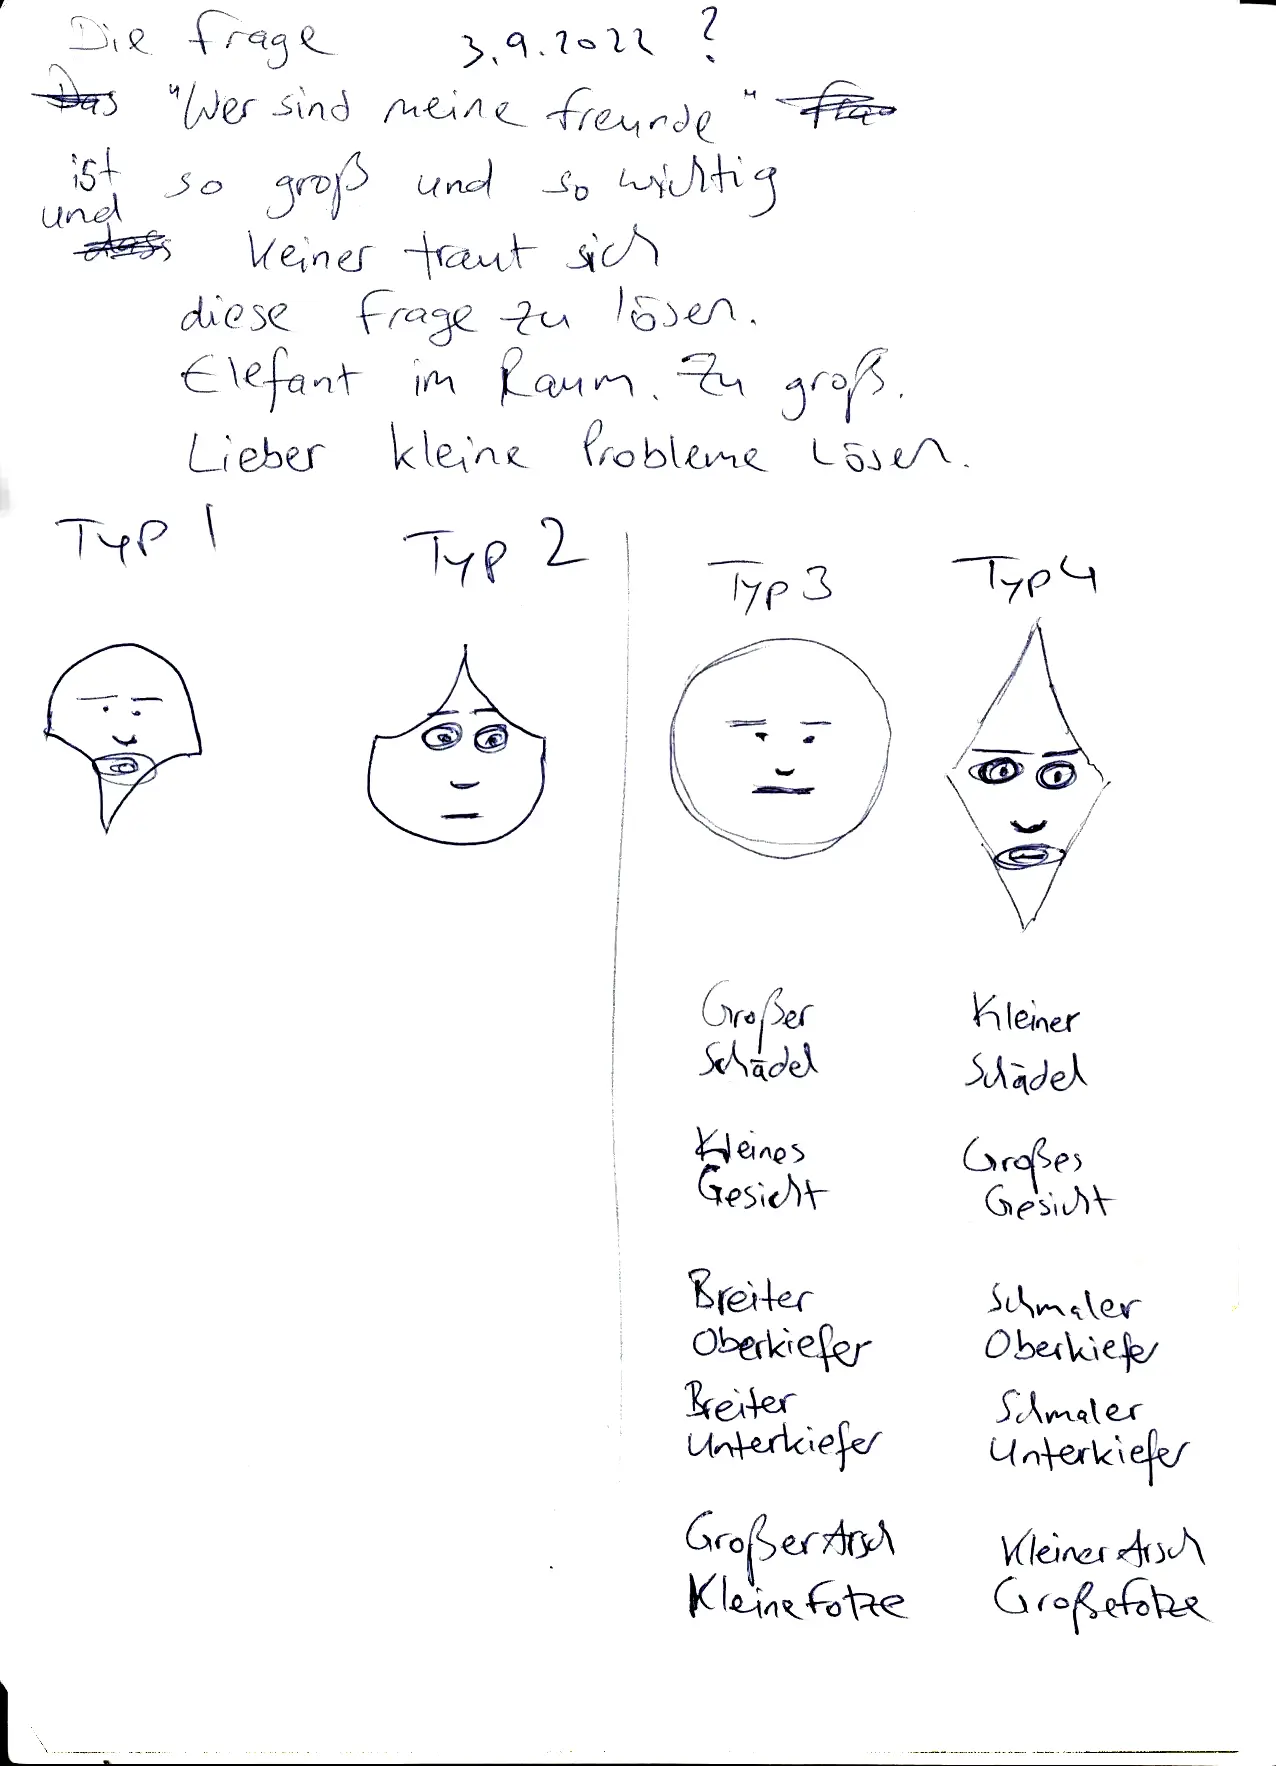 Die Frage 3.9.2022 ?
Das "Wer sind meine Freunde" Fra
ist so groß und so wichtig
und
dass keiner traut sich
diese Frage zu lösen.
Elefant im Raum. Zu groß.
Lieber kleine Probleme lösen.
Typ 1 Typ 2 Typ 3 Typ 4
Großer
Schädel
Kleines
Gesicht
Breiter
Oberkiefer
Breiter
Unterkiefer
Großer Arsch
Kleine Fotze
Kleiner
Schädel
Großes
Gesicht
Schmaler
Oberkiefer
Schmaler
Unterkiefer
Kleiner Arsch
Große Fotze